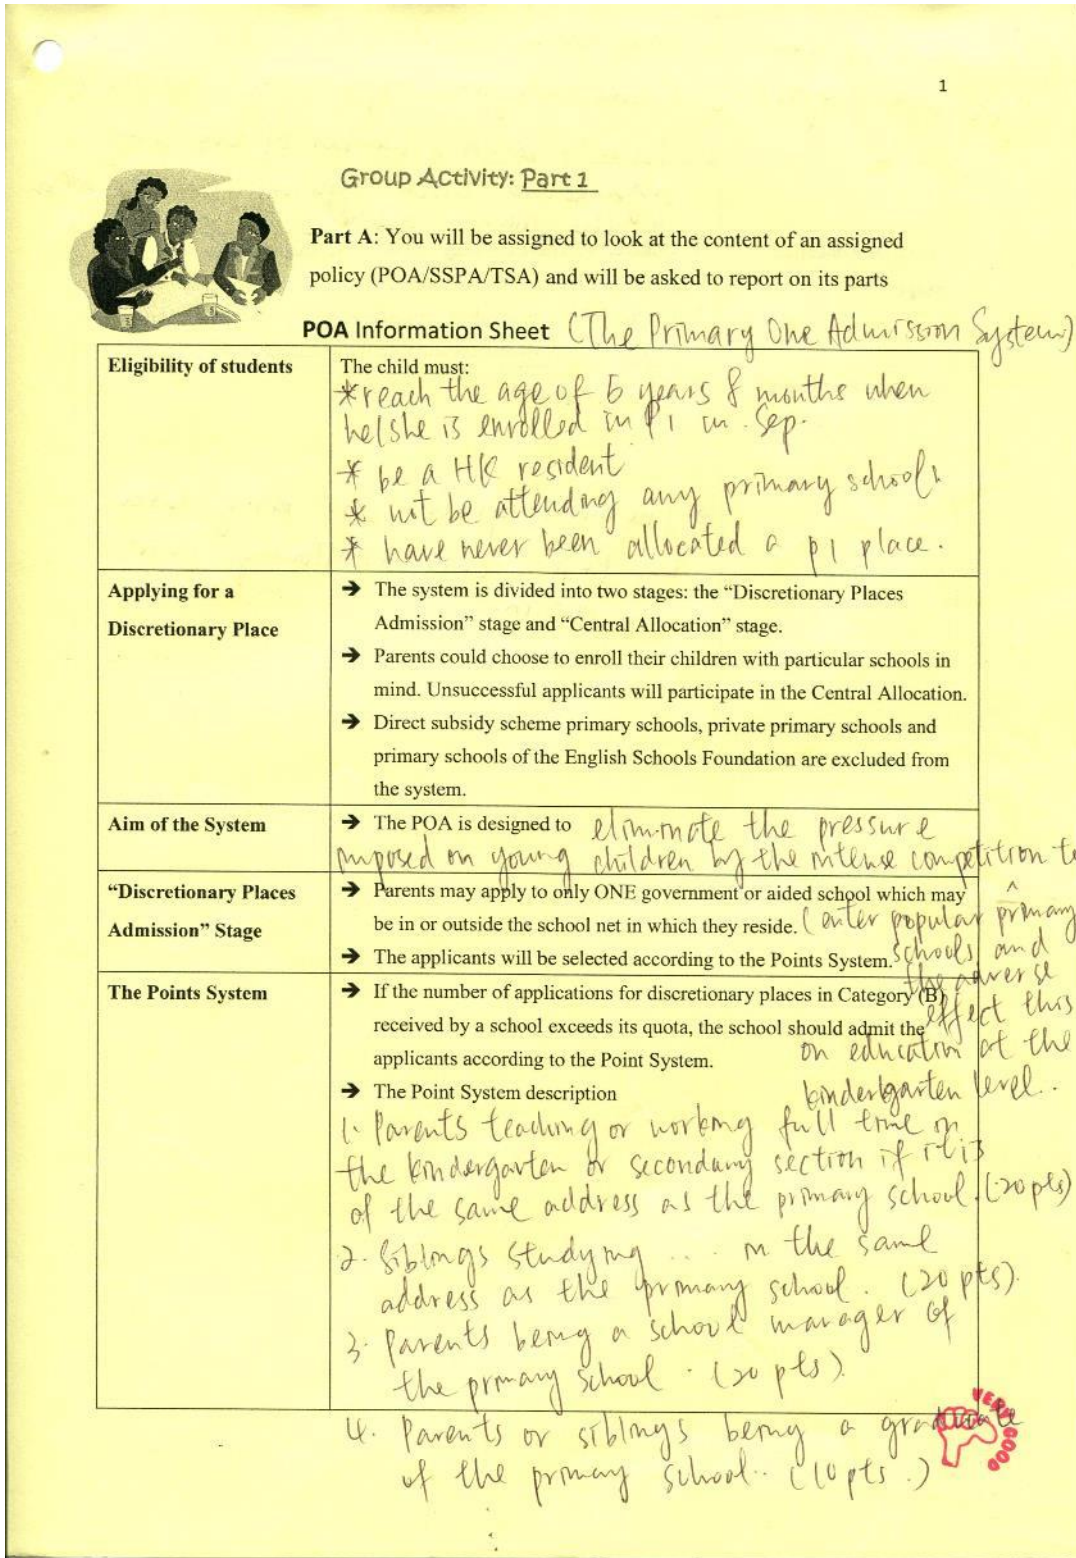 1
Group Activity: Part 1
Part A: You will be assigned to look at the content of an assigned
policy (POA/SSPA/TSA) and will be asked to report on its parts
POA Information Sheet (The Primary One Admission System)
Eligibility of students
The child must:
*reach the age of 5 years 8 months when
he/she is enrolled in P1 in Sep.
* be a HK resident
* not be attending any primary schools
* have never been allocated a p1 place.
Applying for a
Discretionary Place
➔ The system is divided into two stages: the “Discretionary Places
Admission” stage and “Central Allocation” stage.
➔ Parents could choose to enroll their children with particular schools in
mind. Unsuccessful applicants will participate in the Central Allocation.
➔ Direct subsidy scheme primary schools, private primary schools and
primary schools of the English Schools Foundation are excluded from
the system.
Aim of the System
➔ The POA is designed to eliminate the pressure
imposed on young children by the intense competition to
(enter popular primary
schools and
the adverse
effect this
on education at the
kindergarten level.
“Discretionary Places
Admission” Stage
➔ Parents may apply to only ONE government or aided school which may
be in or outside the school net in which they reside.
➔ The applicants will be selected according to the Points System.
The Points System
➔ If the number of applications for discretionary places in Category (B)
received by a school exceeds its quota, the school should admit the
applicants according to the Point System.
➔ The Point System description
1. Parents teaching or working full time in
the kindergarten or secondary section if it is
of the same address as the primary school. (20 pts)
2. Siblings studying ... in the same
address as the primary school. (20 pts).
3. Parents being a school manager of
the primary school. (20 pts).
4. Parents or siblings being a graduate
of the primary school.. (10 pts.)
VERY GOOD